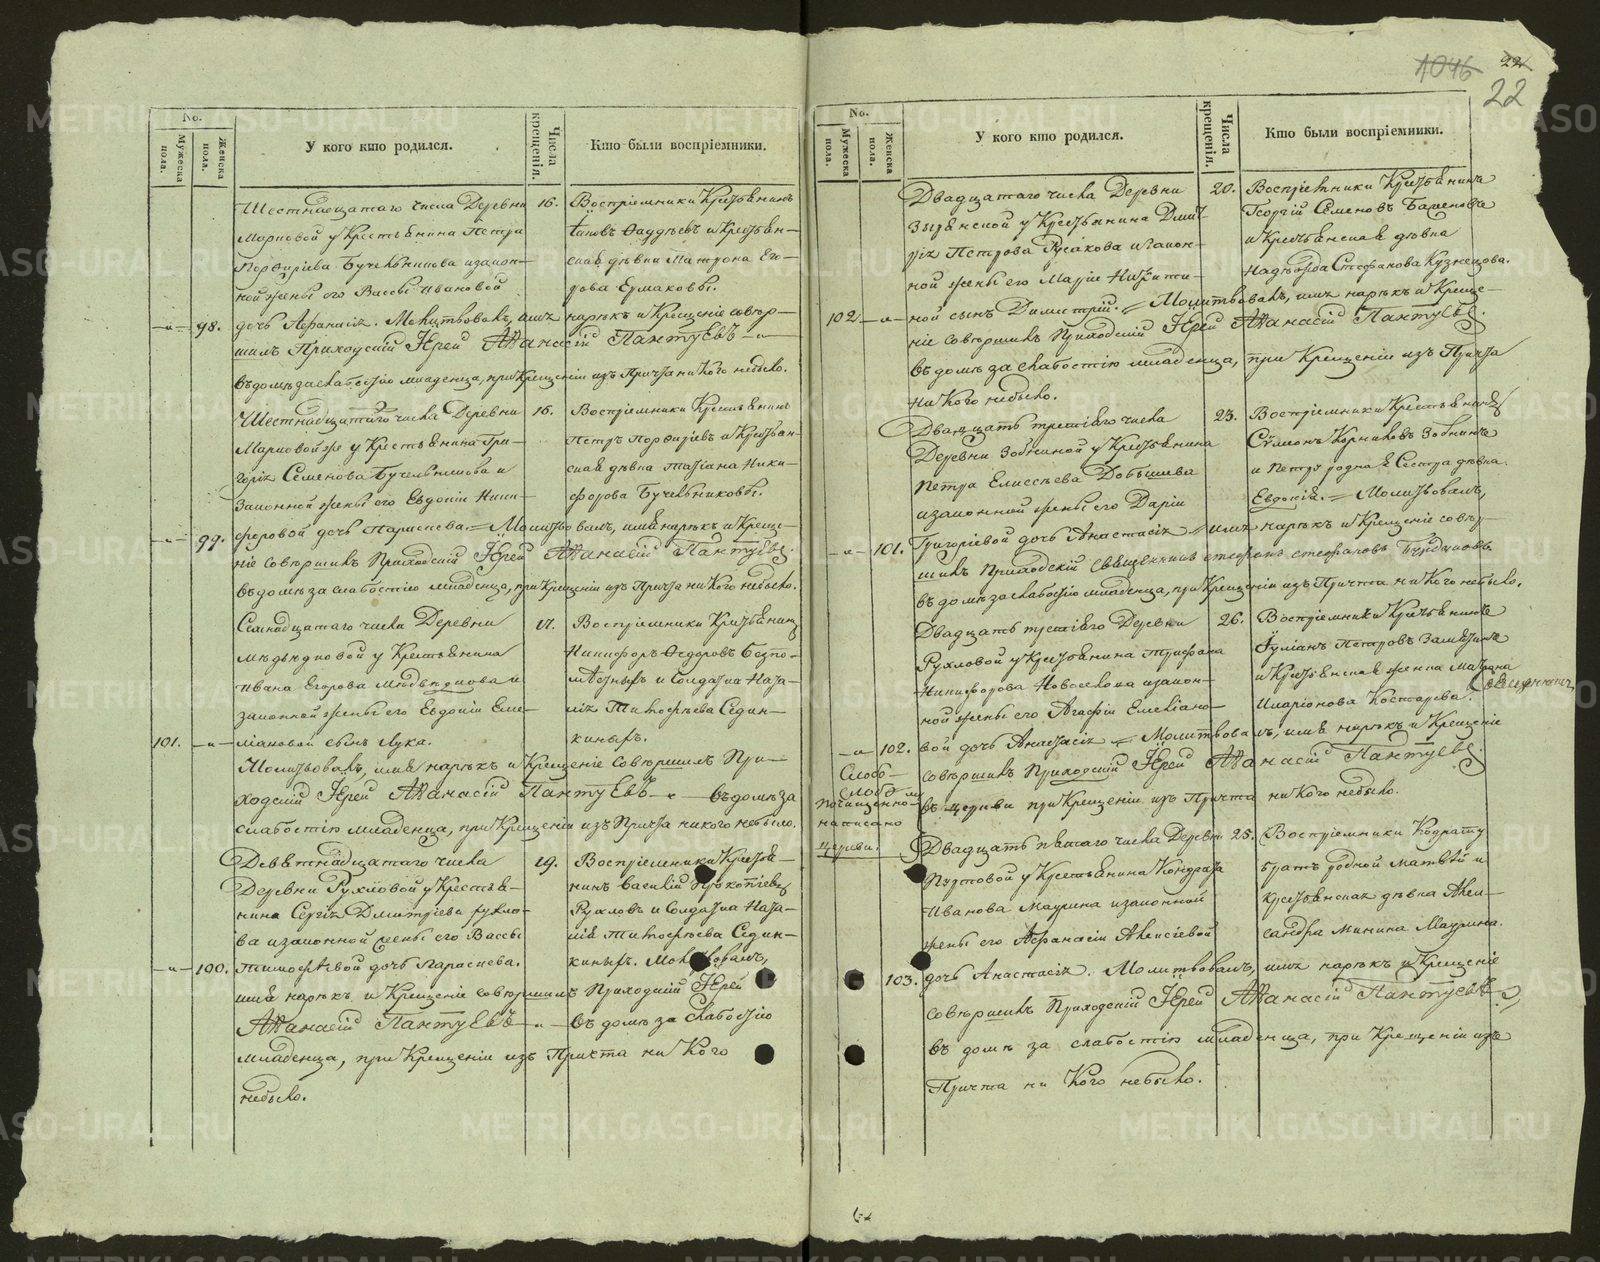 1046 22
22
No.
Мужеска пола.
Женска пола.
У кого кто родился.
Числа крещенія.
Кто были воспріемники.
Шестнадцатаго числа Деревни
Марковой у Крестьянина Петра
Порфирьева Бучельникова изакон-
ной жены его Вассы Ивановой
—„— 98. дочь Афанасія. Молитвовалъ, имя нарѣкъ и Крещеніе совер-
шилъ Приходскій Іерей Афанасій Пантуевъ —„—
въ домѣ за слабостію младенца, при Крещеніи изъ Причта ни Кого небыло.
16. Воспріемники Крестьянинъ
Ѳаддѣевъ и Крестьян-
ская дѣвка Матрона Его-
рова Ермаковы.
Шестнадцатаго числа Деревни
Марковой же у Крестьянина Гри-
горія Семенова Бучельникова и
Законной жены его Евдокіи Ники-
—„— 99. форовой дочь Параскева. = Молитвовалъ, имя нарѣкъ и Креще-
ніе совершилъ Приходскій Іерей Афанасій Пантуевъ.
въ домѣ за слабостію младенца, при Крещеніи изъ Причта ни Кого небыло.
16. Воспріемники Крестьянинъ
Петръ Порфирьевъ и Крестьян-
ская дѣвка Татіана Ники-
форова Бучельниковы.
Семнадцатаго числа Деревни
Медвѣдковой у Крестьянина
Ивана Егорова Медвѣдкова и
законной жены его Евдокіи Еме-
101. —„— ліановой сынъ Лука.
Молитвовалъ, имя нарѣкъ и Крещеніе совершилъ При-
ходскій Іерей Афанасій Пантуевъ —„— въ домѣ за
слабостію младенца, при Крещеніи изъ Причта никого небыло.
17. Воспріемники Крестьянинъ
Никифоръ Федоровъ Безпо-
мѣтныхъ и Солдатка Ната-
лія Тимофѣева Седин-
киныхъ.
Девятнадцатаго числа
Деревни Рухловой у Крестья-
нина Сергія Дмитріева Рухло-
ва изаконной жены его Вассы
—„— 100. Тимофѣевой дочь Параскева.
имя нарѣкъ и Крещеніе совершилъ Приходскій Іерей
Афанасій Пантуевъ —„— въ домѣ за слабостію
младенца, при Крещеніи изъ Причта ни Кого
небыло.
19. Воспріемники Крестья-
нинъ Василій Прокопіевъ
Рухловъ и Солдатка Ната-
лія Тимофѣева Седин-
киныхъ. Молитвовалъ,
No.
Мужеска пола.
Женска пола.
У кого кто родился.
Числа крещенія.
Кто были воспріемники.
Двадцатаго числа Деревни
Зырянской у Крестьянина Дмит-
рія Петрова Русакова изакон-
ной жены его Маріи Никити-
102. —„— ной сынъ Димитрій. = Молитвовалъ, имя нарѣкъ и Креще-
ніе совершилъ Приходскій Іерей Афанасій Пантуевъ.
въ домѣ за слабостію младенца, при Крещеніи изъ Причта
ни Кого небыло.
20. Воспріемники Крестьянинъ
Георгій Семеновъ
и Крестьянская дѣвка
Надежда Стефанова Кузнецова.
Двадцать третіяго числа
Деревни Зобниной у Крестьянина
Петра Елисеева Добышева
изаконной жены его Даріи
—„— 101. Григоріевой дочь Анастасія = имя нарѣкъ и Крещеніе совер-
шилъ Приходскій Священникъ Стефанъ Стефановъ
въ домѣ за слабостію младенца, при Крещеніи изъ Причта ни Кого небыло.
23. Воспріемники Крестьянинъ
Сѵмеонъ Корниловъ Зобнинъ
и Петру родная Сестра дѣвка
Евдокія. = Молитвовалъ,
Двадцать третіяго Деревни
Рухловой у Крестьянина Трифона
Никифорова Новоселова изакон-
ной жены его Агафіи Емеліано-
—„— 102. вой дочь Анастасія = Молитвовалъ, имя нарѣкъ и Крещеніе
совершилъ Приходскій Іерей Афанасій Пантуевъ.
въ церкви при Крещеніи изъ Причта ни Кого небыло.
26. Воспріемники Крестьянинъ
Іуліанъ Петровъ Замятинъ
и Крестьянская женка Матрона
Иларіонова Костарева.
почищенно-
написано
церкви.
Двадцать пятаго числа Деревни
Пуртовой у Крестьянина Кондрата
Иванова Маурина изаконной
жены его Афанасіи Алексіевой
103. дочь Анастасія. Молитвовалъ, имя нарѣкъ и Крещеніе
совершилъ Приходскій Іерей Афанасій Пантуевъ
въ домѣ за слабостію младенца, при Крещеніи изъ
Причта ни Кого небыло.
25. Воспріемники Кодрату
братъ родной Матвѣй и
Крестьянская дѣвка Алек-
сандра Минина Маурина.